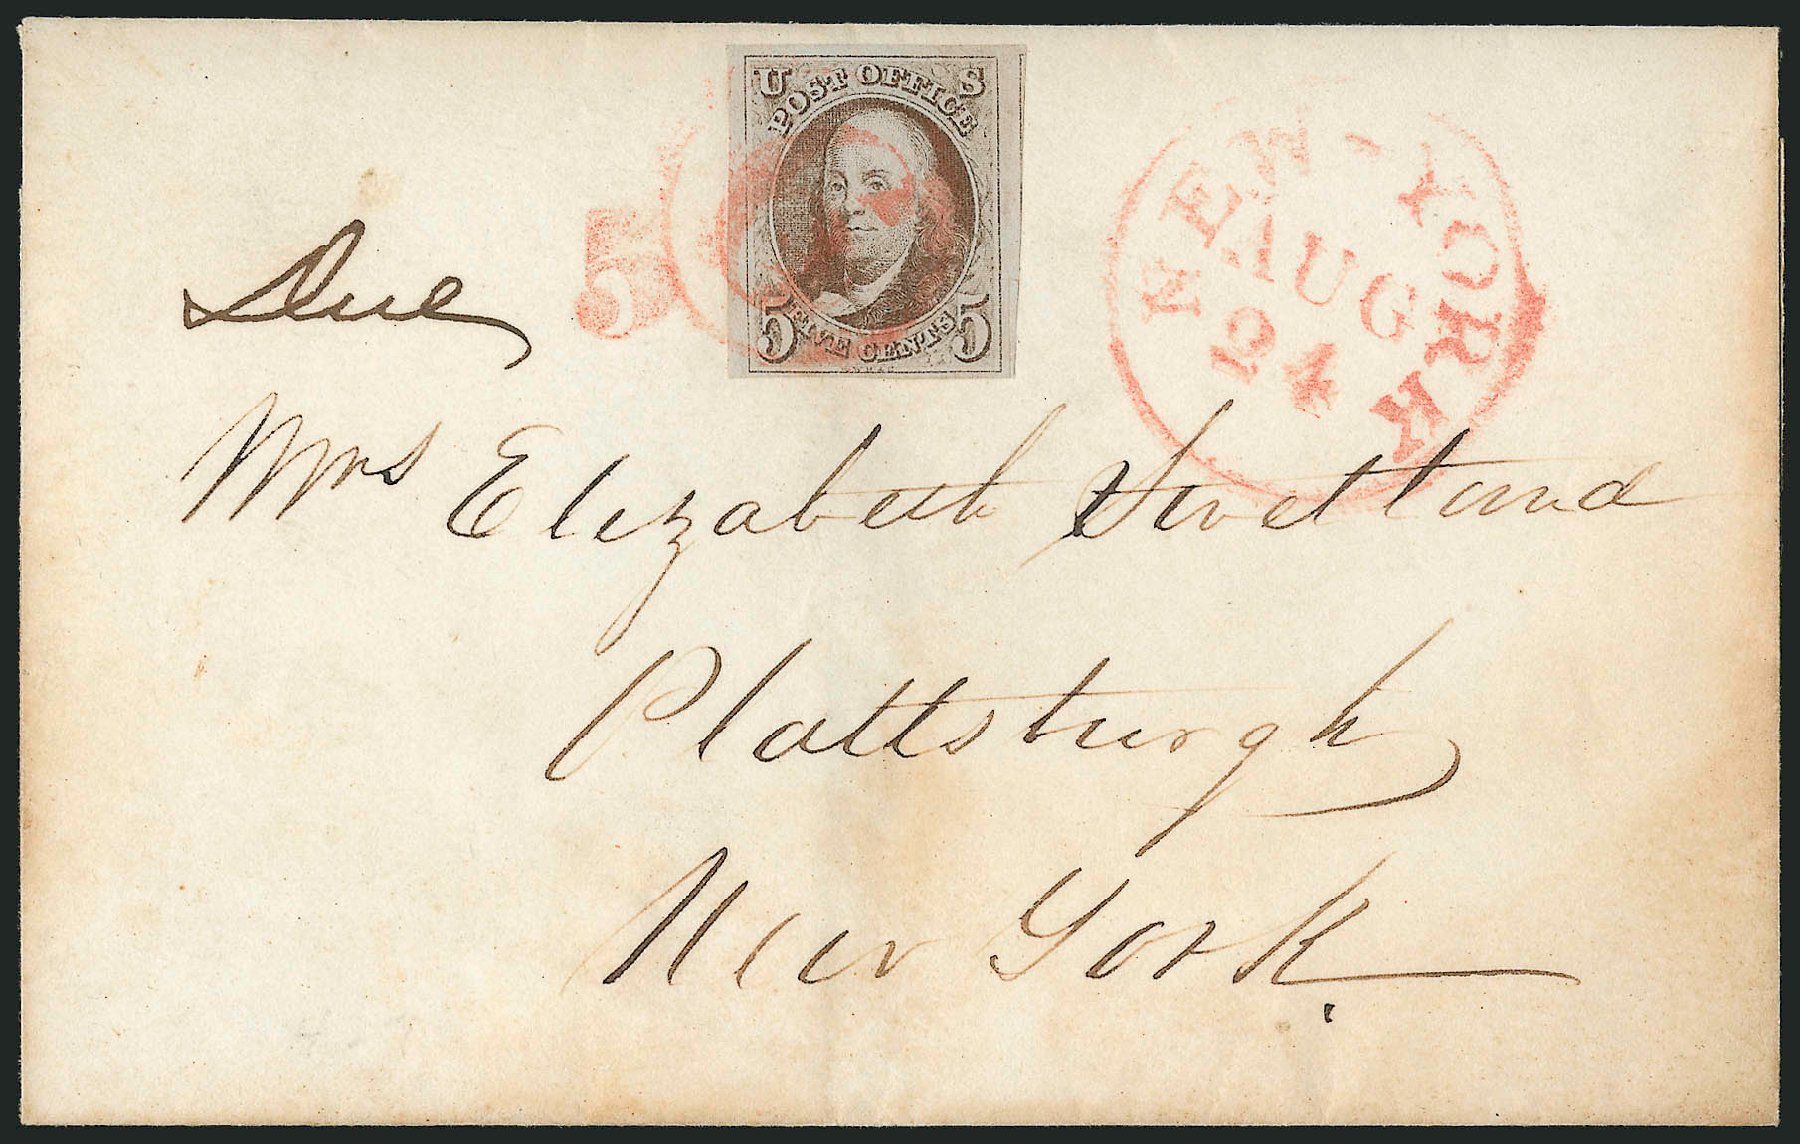 U S
POST OFFICE
5 FIVE CENTS 5
NEW-YORK
AUG
24
Due 5
Mrs Elizabeth Swetland
Plattsburgh
New York